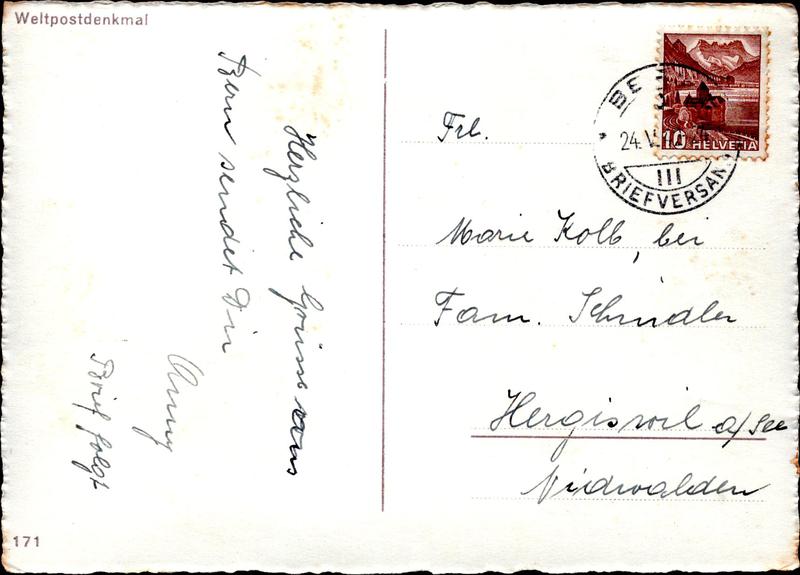 Weltpostdenkmal
Herzliche Grüsse aus
Bern sendet Dir
Anny
Brief folgt
171
10 HELVETIA
24.
III
BRIEFVERSAND
Frl.
Marie Kolb, bei
Fam. Schindler
Hergiswil a/See
Nidwalden